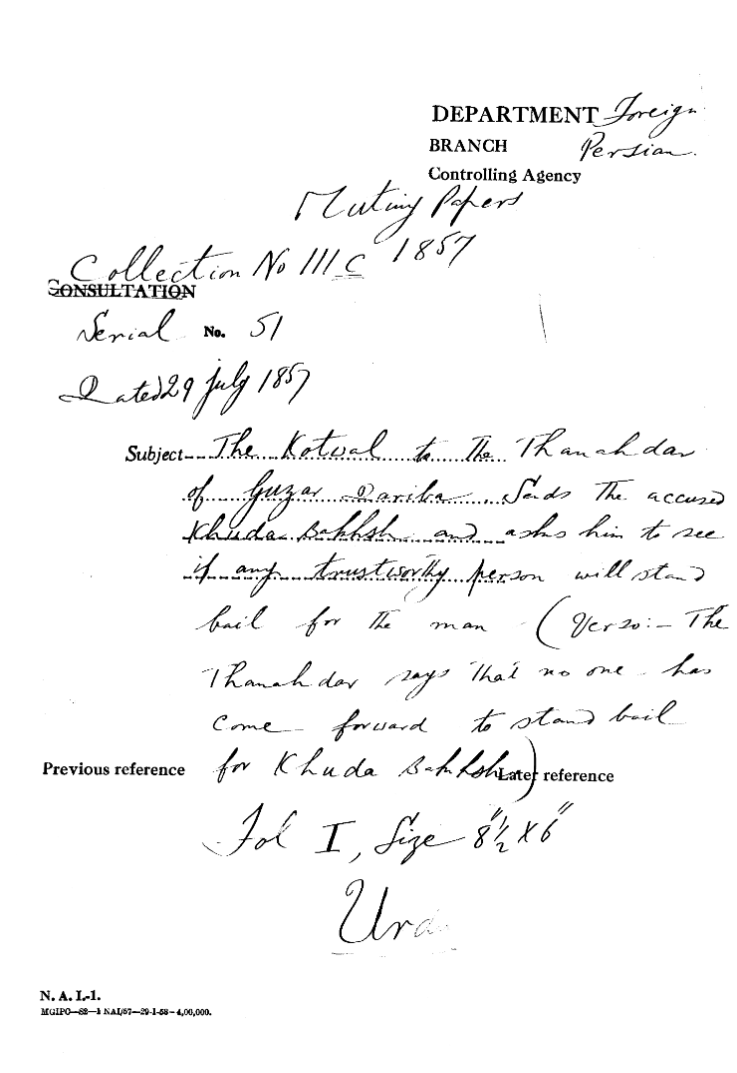 DEPARTMENT Foreign
BRANCH Persian.
Controlling Agency
Mutiny Papers
1857
Collection No III C
CONSULTATION
Serial No. 51
Dated 29 July 1857
Subject The Kotwal to the Thanahdar
of Guzar Dariba Sends the accused
Khuda Bakhsh and asks him to see
if any trustworthy person will stand
bail for the man (Verso:- The
Thanahdar says that no one has
come forward to stand bail
Previous reference for Khuda Bakhsh) Later reference
Fol I, Size 8"½ X 6"
N. A. I.-1.
MGIPC—S2—1 NAI/57—29-1-58—4,00,000.